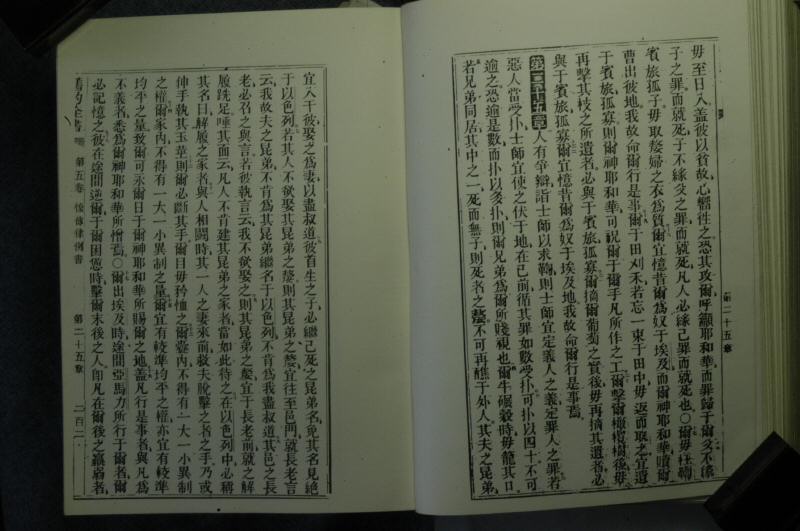 毋至日入蓋彼以貧故心嚮徃之恐其攻爾呼籲耶和華而罪歸于爾父不緣
子之罪而就死子不緣父之罪而就死凡人必緣己罪而就死也○爾毋枉
賓旅孤子毋取嫠婦之衣爲質爾宜憶昔爾爲奴于埃及而爾神耶和華贖爾
曹出彼地我故命爾行是事爾于田刈禾若忘一束于田中毋返而取之宜遺
于賓旅孤寡則爾神耶和華可祝爾于爾手凡所作之工爾擊爾橄欖樹後毋
再擊其枝之所遺者必與于賓旅孤寡爾摘爾葡萄之實後毋再摘其遺者必
與于賓旅孤寡爾宜憶昔爾爲奴于埃及地我故命爾行是事焉
第二十五章人有爭辯詣士師以求鞫則士師宜定義人之義定罪人之罪若
惡人當受扑士師宜使之伏于地在己前循其罪如數受扑可扑以四十不可
逾之恐逾是數而扑以多扑則爾兄弟爲爾所賤視也爾牛碾穀時毋籠其口
若兄弟同居其中之一死而無子則死者之嫠不可再醮于外人其夫之昆弟
第二十五章
宜入于彼娶之爲妻以盡叔道彼首生之子必繼已死之昆弟名免其名見絕
于以色列若其人不欲娶其昆弟之嫠則其昆弟之嫠宜往至邑門就長老言
云我故夫之昆弟不肯爲其昆弟繼名于以色列不肯爲我盡叔道其邑之長
老必召之與言若彼執言云我不欲娶之則其昆弟之嫠宜于長老前就之解
履跣足唾其面而云凡人不肯建其昆弟之家者當如此待之在以色列中必稱
其名曰解履之家者與人相鬪時其一人之妻來前救夫脫擊之者之手乃或
伸手執其玉莖則爾必斷其手爾目毋矜恤之爾囊內不得有一大一小異制
之權爾家內不得有一大一小異制之量爾宜有較準均平之權亦宜有較準
均平之量致爾可永爾日于爾神耶和華所賜爾之地蓋凡行是事者與凡爲
不義者悉爲爾神耶和華所憎焉○爾出埃及時途間亞馬力所行于爾者爾
必記憶之彼在途間逆爾于爾困憊時擊爾末後之人卽凡在爾後之羸弱者
舊約全書 第五卷 復傳律例書 第二十五章 二百二